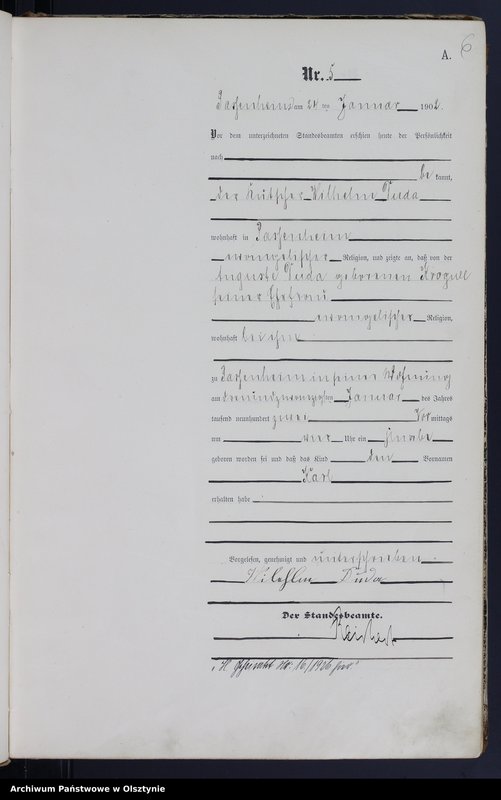 A. 6
Nr. 5
Passenheim am 24 ten Januar 1902.
Vor dem unterzeichneten Standesbeamten erschien heute der Persönlichkeit
nach
be kannt,
der Kutscher Wilhelm Duda
wohnhaft in Passenheim
evangelischer Religion, und zeigte an, daß von der
Auguste Duda geborenen Krogull
seiner Ehefrau
evangelischer Religion,
wohnhaft bei ihm
zu Passenheim in seiner Wohnung
am dreiundzwanzigsten Januar des Jahres
tausend neunhundert zwei Vor mittags
um vier Uhr ein Knabe
geboren worden sei und daß das Kind den Vornamen
Karl
erhalten habe
Vorgelesen, genehmigt und unterschrieben.
Wilehlm Duda
Der Standesbeamte.
H. Nr. 16/1926
Archiwum Państwowe w Olsztynie